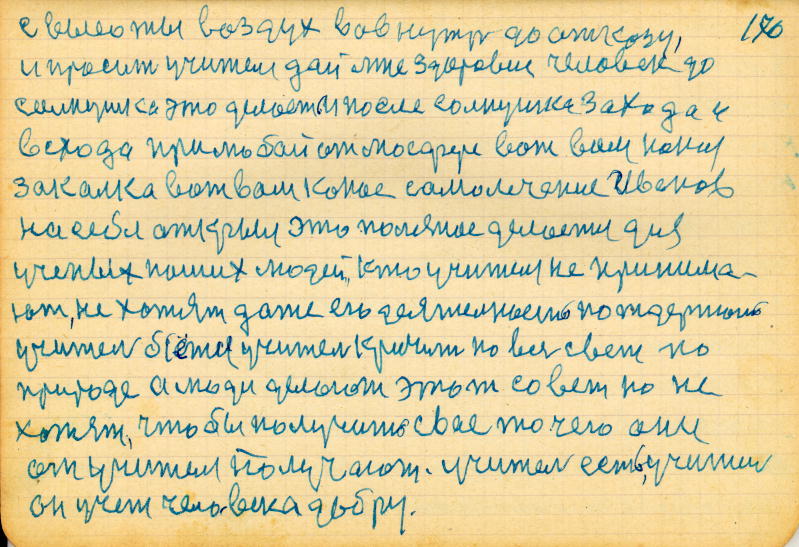 с высоты воздух вовнутрь до отказу, 170
и просит учителя дай мне здоровие человек до
солнушка это делает и после солнушка захода и
всхода при любой отмосфере вот вам
закалка вот вам самолечение Иванов
на себя открыл это полезное делаетя для
ученых наших людей, кто учителя не принима-
ют, не хотят даже его деятельность
учител бется учител кричит на вес свет по
природе а люди делают этот совет но не
хотят, что бы получить свае то чего они
от учителя получают. учител есть, учител
он учет человека добру.